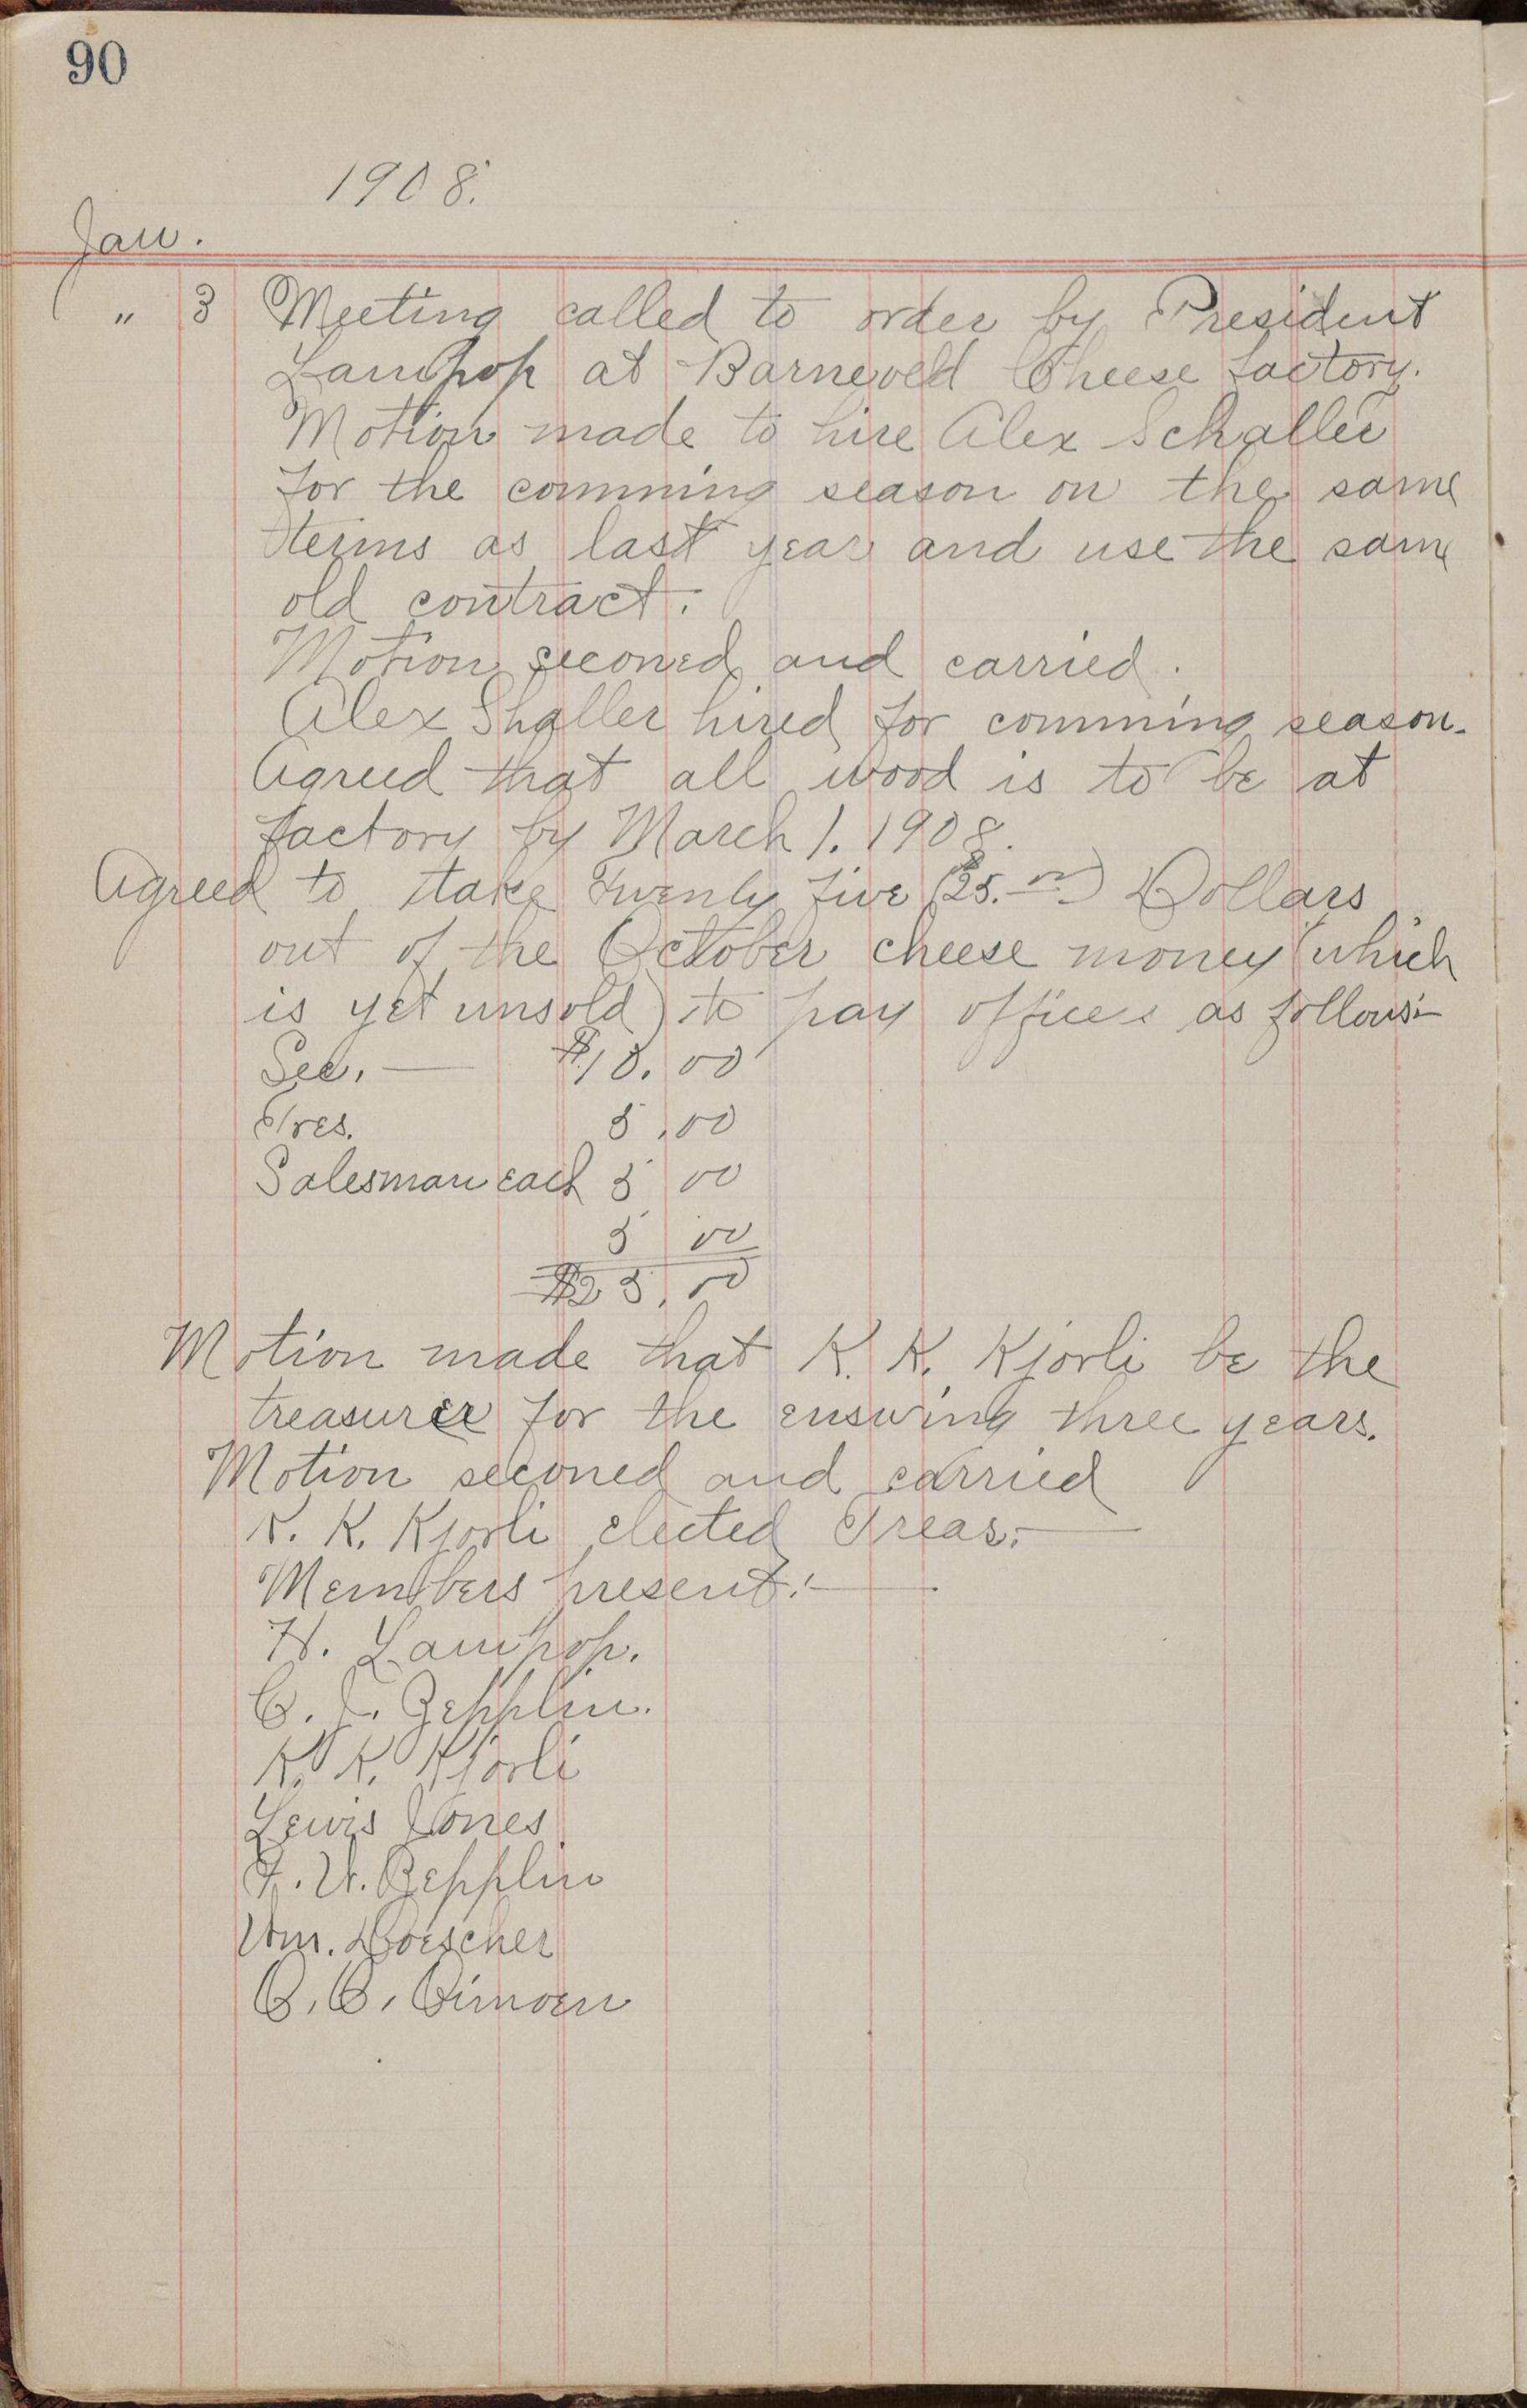 90
1908.
Jan.
" 3 Meeting called to order by President
Lampop at Barneveld Cheese factory.
Motion made to hire Alex Schaller
for the comming season on the same
terms as last year and use the same
old contract.
Motion seconed and carried.
Alex Shaller hired for comming season.
Agreed that all wood is to be at
factory by March 1. 1908.
Agreed to take Twenty five ($25.00) Dollars
out of the October cheese money (which
is yet unsold) to pay officers as follows:-
Sec. — $10.00
Tres. 5.00
Salesman each 5 00
5 00
$25.00
Motion made that K. K. Kjorli be the
treasurer for the ensuing three years.
Motion seconed and carried
K. K. Kjorli elected Treas. —
Members present:—
H. Lampop.
C. J. Zepplin.
K. K. Kjorli
Lewis Jones
F. W. Zepplin
Wm. Doescher
O. O.